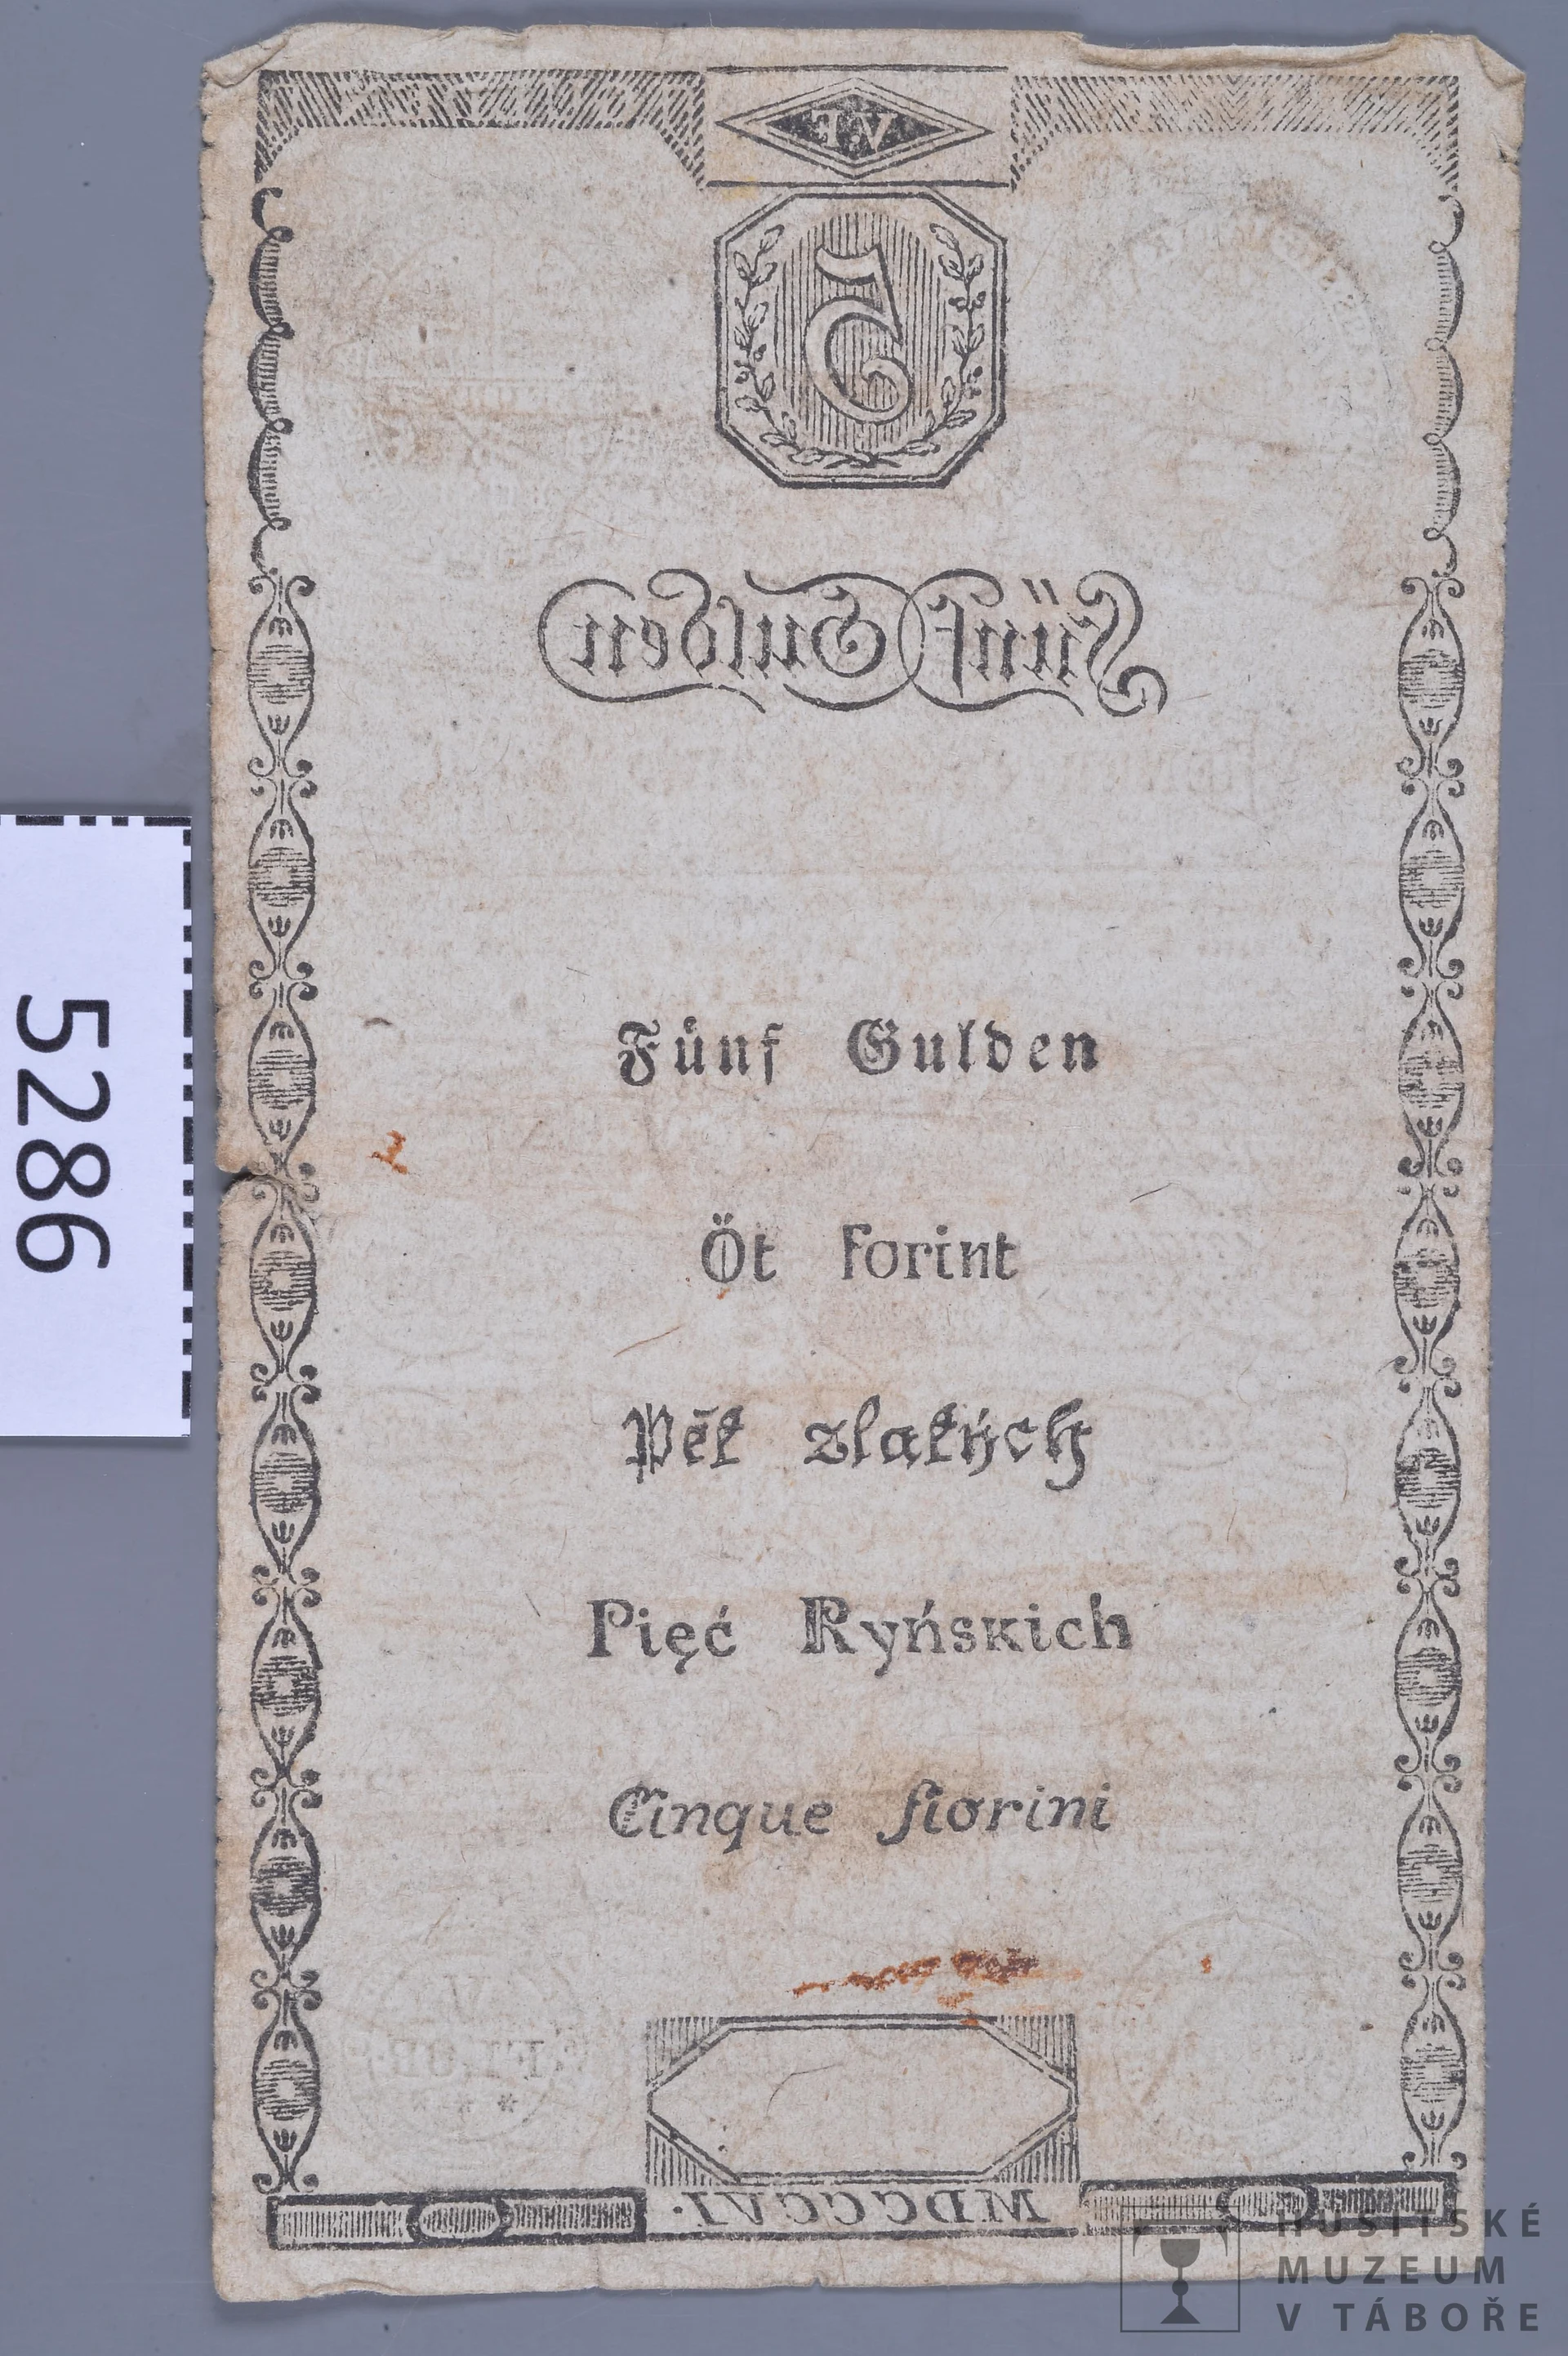 5
Fünf Gulden
Fünf Gulden
Öt forint
Pět zlatých
Pięć Ryńskich
Cinque fiorini
MDCCCVI.
5286
HUSITSKÉ
MUZEUM
V TÁBOŘE